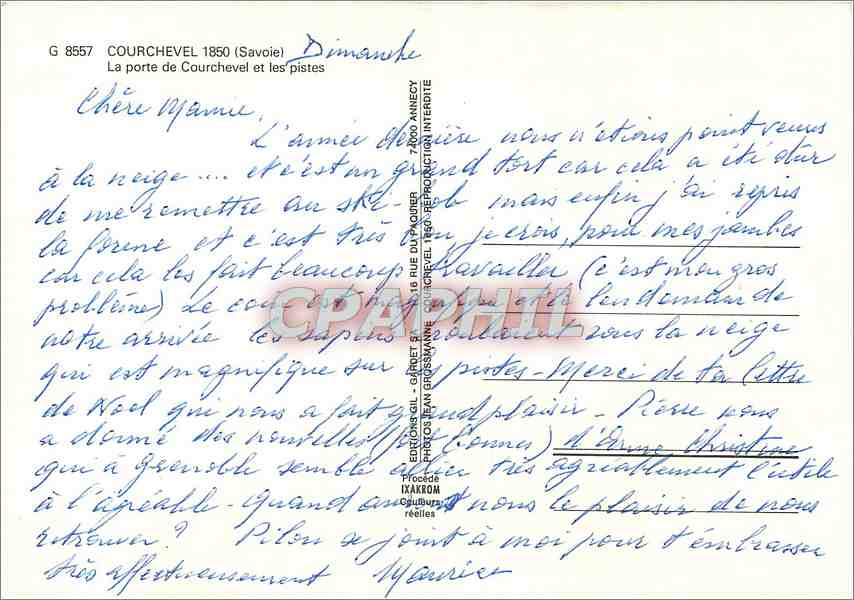 G 8557 COURCHEVEL 1850 (Savoie) Dimanche
La porte de Courchevel et les pistes
Chère Mamie,
L'année dernière nous n'étions point venus
à la neige .... et c'est un grand tort car cela a été dur
de me remettre au ski-bob mais enfin j'ai repris
la forme et c'est très bon, je crois, pour mes jambes
car cela les fait beaucoup travailler (c'est mon gros
problème) Le coin est magnifique et le lendemain de
notre arrivée les sapins croulaient sous la neige
qui est magnifique sur les pistes - Merci de ta lettre
de Noel qui nous a fait grand plaisir - Pierre nous
a donné des nouvelles (fort bonnes) d'Anne Christine
qui à Grenoble semble allier très agréablement l'utile
à l'agréable - Quand aurons nous le plaisir de nous
retrouver ? Pilou se joint à moi pour t'embrasser
très affectueusement Maurice
EDITIONS GIL - GARDET SA 16 RUE DU PAQUIER 74000 ANNECY
PHOTOS JEAN GROSSMANNE COURCHEVEL 1850 REPRODUCTION INTERDITE
Procédé
IXAKROM
Couleurs
réelles
CPAPHIL